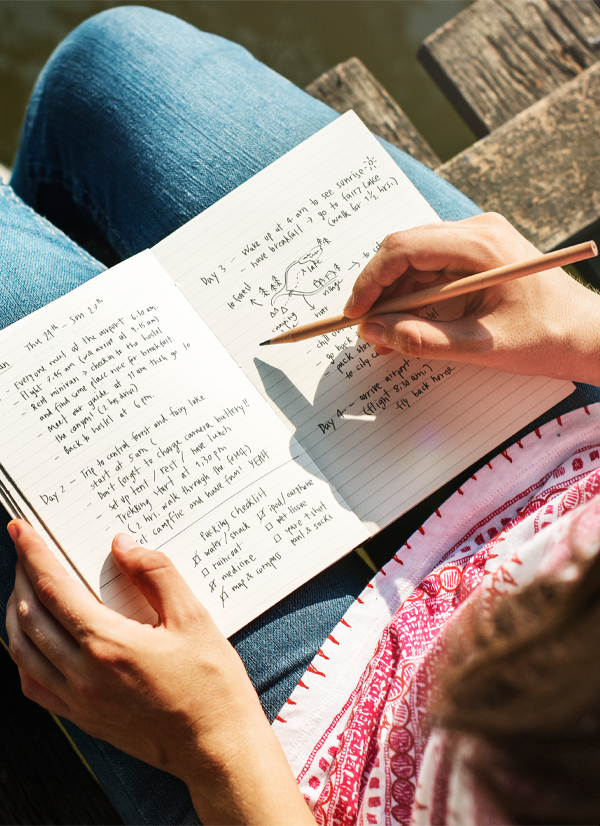 Thu 29th - Sun
Everyone meet at the airport 6.30 am
flight 7.15 am (will arrive at 9.15 am)
Rent minivan > checkin to the hostel
and find some place nice for breakfast.
Meet our guide at 11 am then go to
the canyon (2 hrs drive)
Back to hotel at 6 pm.
Day 2 - Trip to central forest and fairy lake
start at 5 am (
Don't forget to charge camera battery!!
set up tent / rest / have lunch
Trekking start at 1.30 pm
(2 hrs. walk through the forest)
campfire and have fun! YEAH
Packing Checklist
water / snack
raincoat
medicine
map & compas
ipod / earphone
wet tissue
shirt
pant & socks
Day 3 - Wake up at 4 am to see sunrise
- have breakfast → go to fairy lake
(walk for 1 1/2 hrs.)
to forest
lake
camping
river
go back
pack
to city
Day 4 - arrive airport
(flight 8.30 am)
fly back home